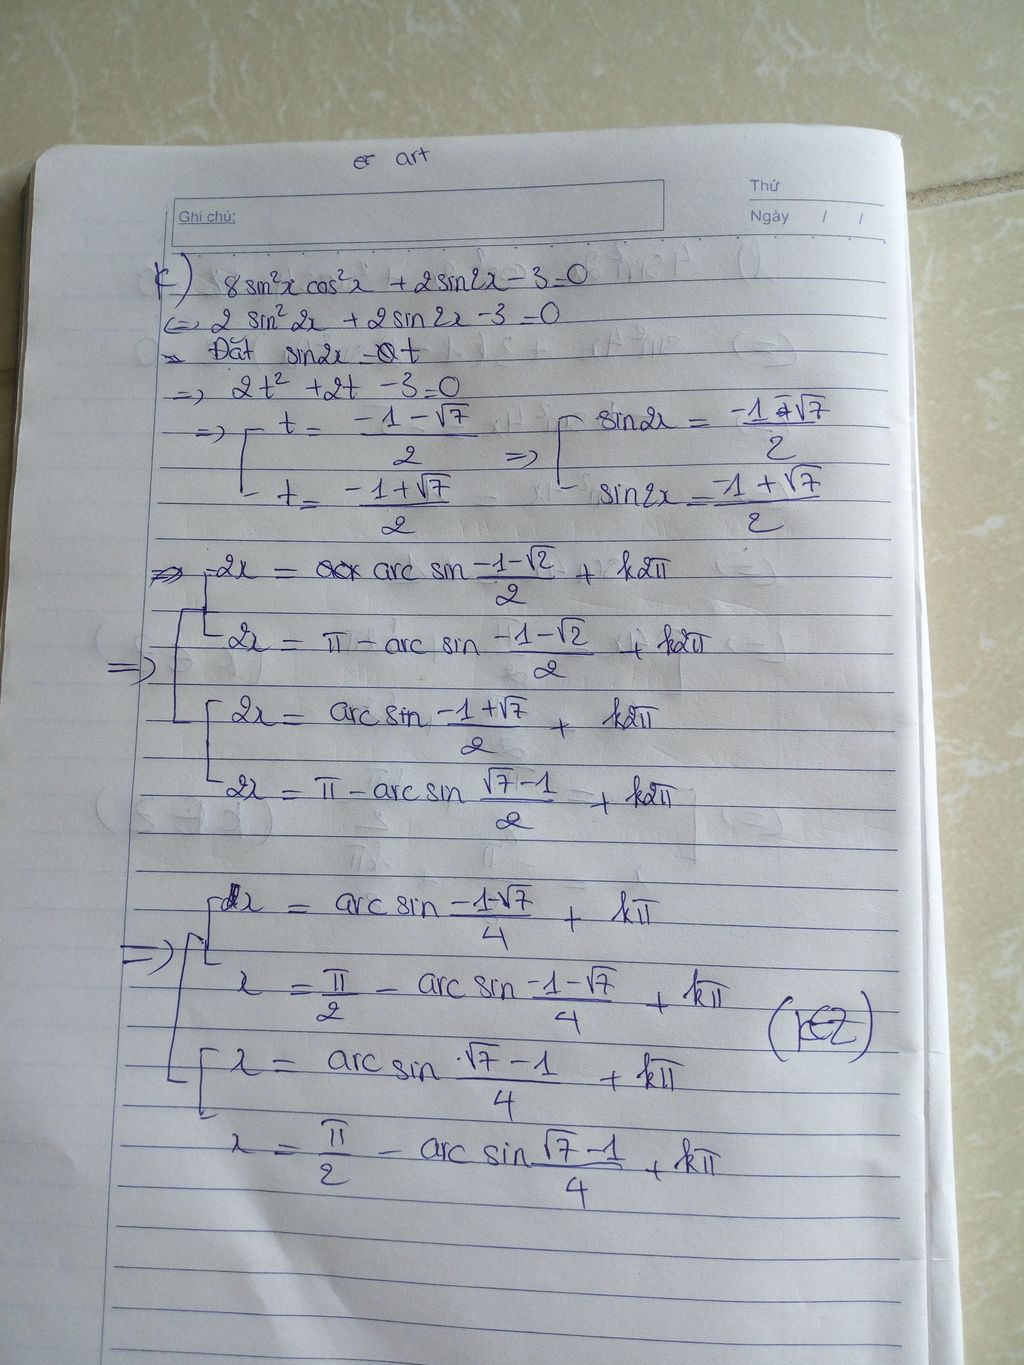 er art
Thứ
Ghi chú:
Ngày / /
k) 8sin²x cos²x + 2sin2x - 3 = 0
<=> 2 sin² 2x + 2sin2x - 3 = 0
Đặt sin2x = t
=> 2t² + 2t - 3 = 0
=> [ t = (-1 - √7)/2 => [ sin2x = (-1 - √7)/2
t = (-1 + √7)/2 sin2x = (-1 + √7)/2
2x = arc sin (-1 - √2)/2 + k2π
=> 2x = π - arc sin (-1 - √2)/2 + k2π
2x = arc sin (-1 + √7)/2 + k2π
2x = π - arc sin (√7 - 1)/2 + k2π
x = arc sin (-1 - √7)/4 + kπ
=> x = π/2 - arc sin (-1 - √7)/4 + kπ (k∈Z)
x = arc sin (√7 - 1)/4 + kπ
x = π/2 - arc sin (√7 - 1)/4 + kπ